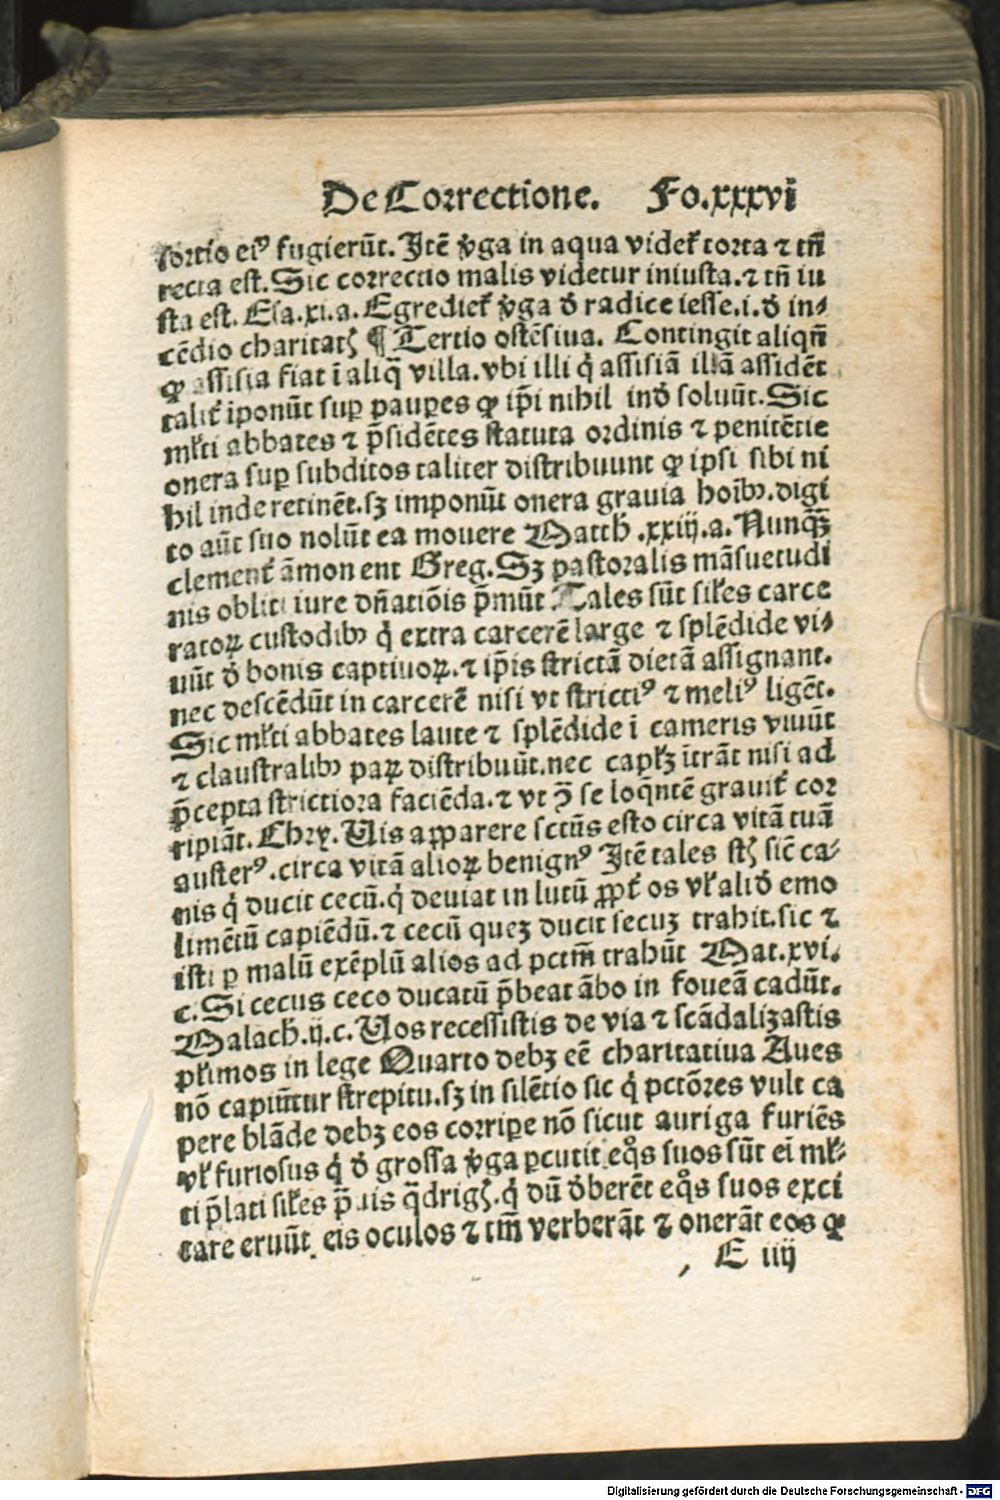 De Correctione. Fo.xxxvi
sortio eiꝰ fugierūt. Itē v̄ga in aqua videt᷑ torta ⁊ tn̄
recta est. Sic correctio malis videtur iniusta.⁊ tn̄ iu
sta est. Esa.xi.a. Egrediet᷑ v̄ga d̄ radice iesse.i.d̄ in⸗
cēdio charitatꝭ ¶ Tertio ostēsiua. Contingit aliqn̄
ꝙ assisia fiat ī aliq̄ villa.vbi illi q̇ assisiā illā assidēt
talit᷑ īponūt suꝑ pauꝑes ꝙ ip̄i nihil ind̄ soluūt. Sic
ml̓ti abbates ⁊ p̄sidētes statuta ordinis ⁊ penitētie
onera suꝑ subditos taliter distribuunt ꝙ ipsi sibi ni
hil inde retinēt.sꝫ imponūt onera grauia hoīb⁹.digi
to aūt suo nolūt ea mouere Matth̄.xxiij.a. Nunq̄ꝫ
clement᷑ āmonent Greg. Sꝫ pastoralis māsuetudi
nis obliti iure dn̄atiōis p̄mūt Tales sūt sil̓es carce
ratoꝝ custodib⁹ q̇ extra carcerē large ⁊ splēdide vi⸗
uūt d̄ bonis captiuoꝝ.⁊ ip̄is strictā dietā assignant.
nec descēdūt in carcerē nisi vt strictiꝰ ⁊ meliꝰ ligēt.
Sic ml̓ti abbates laute ⁊ splēdide ī cameris viuūt
⁊ claustralib⁹ paꝝ distribuūt.nec capl̓ꝫ ītrāt nisi ad
p̄cepta strictiora faciēda.⁊ vt ꝯ̄ se loq̄ntē grauit᷑ cor
ripiāt. Chrẏ. Uis apparere sctūs esto circa vitā tuā
austerꝰ.circa vitā alioꝝ benignꝰ Itē tales stꝭ sic̄ ca⸗
nis q̇ ducit cecū.q̇ deuiat in lutū ꝓpt᷑ os vl̓ aliḋ emo
limētū capiēdū.⁊ cecū quēꝫ ducit secuꝫ trahit.sic ⁊
isti ꝑ malū exēplū alios ad pctm̄ trahūt Mat.xvi.
c. Si cecus ceco ducatū p̄beat ābo in foueā cadūt.
Malach̄.ij.c. Uos recessistis de via ⁊ scādalizastis
pl̓imos in lege Quarto debꝫ eē charitatiua Aues
nō capiūtur strepitu.sꝫ in silētio sic q̇ pctōres vult ca
pere blāde debꝫ eos corripe nō sicut auriga furiēs
vl̓ furiosus q̇ d̄ grossa v̄ga ꝑcutit eq̊s suos sūt ei̅ ml̓⸗
ti p̄lati sil̓es q̄drigꝭ.q̇ dū d̄berēt eq̊s suos exci
tare eruūt eis oculos ⁊ tm̄ verberāt ⁊ onerāt eos ꝙ
E iiij
Digitalisierung gefördert durch die Deutsche Forschungsgemeinschaft - DFG